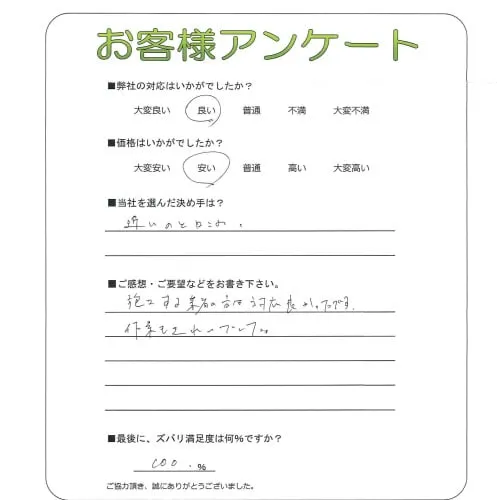 お客様アンケート
■弊社の対応はいかがでしたか?
大変良い 良い 普通 不満 大変不満
■価格はいかがでしたか?
大変安い 安い 普通 高い 大変高い
■当社を選んだ決め手は?
近いの
■ご感想・ご要望などをお書き下さい。
施工する業者の方は対応良かったです。
作業もきれい
■最後に、ズバリ満足度は何%ですか?
100.%
ご協力頂き、誠にありがとうございました。